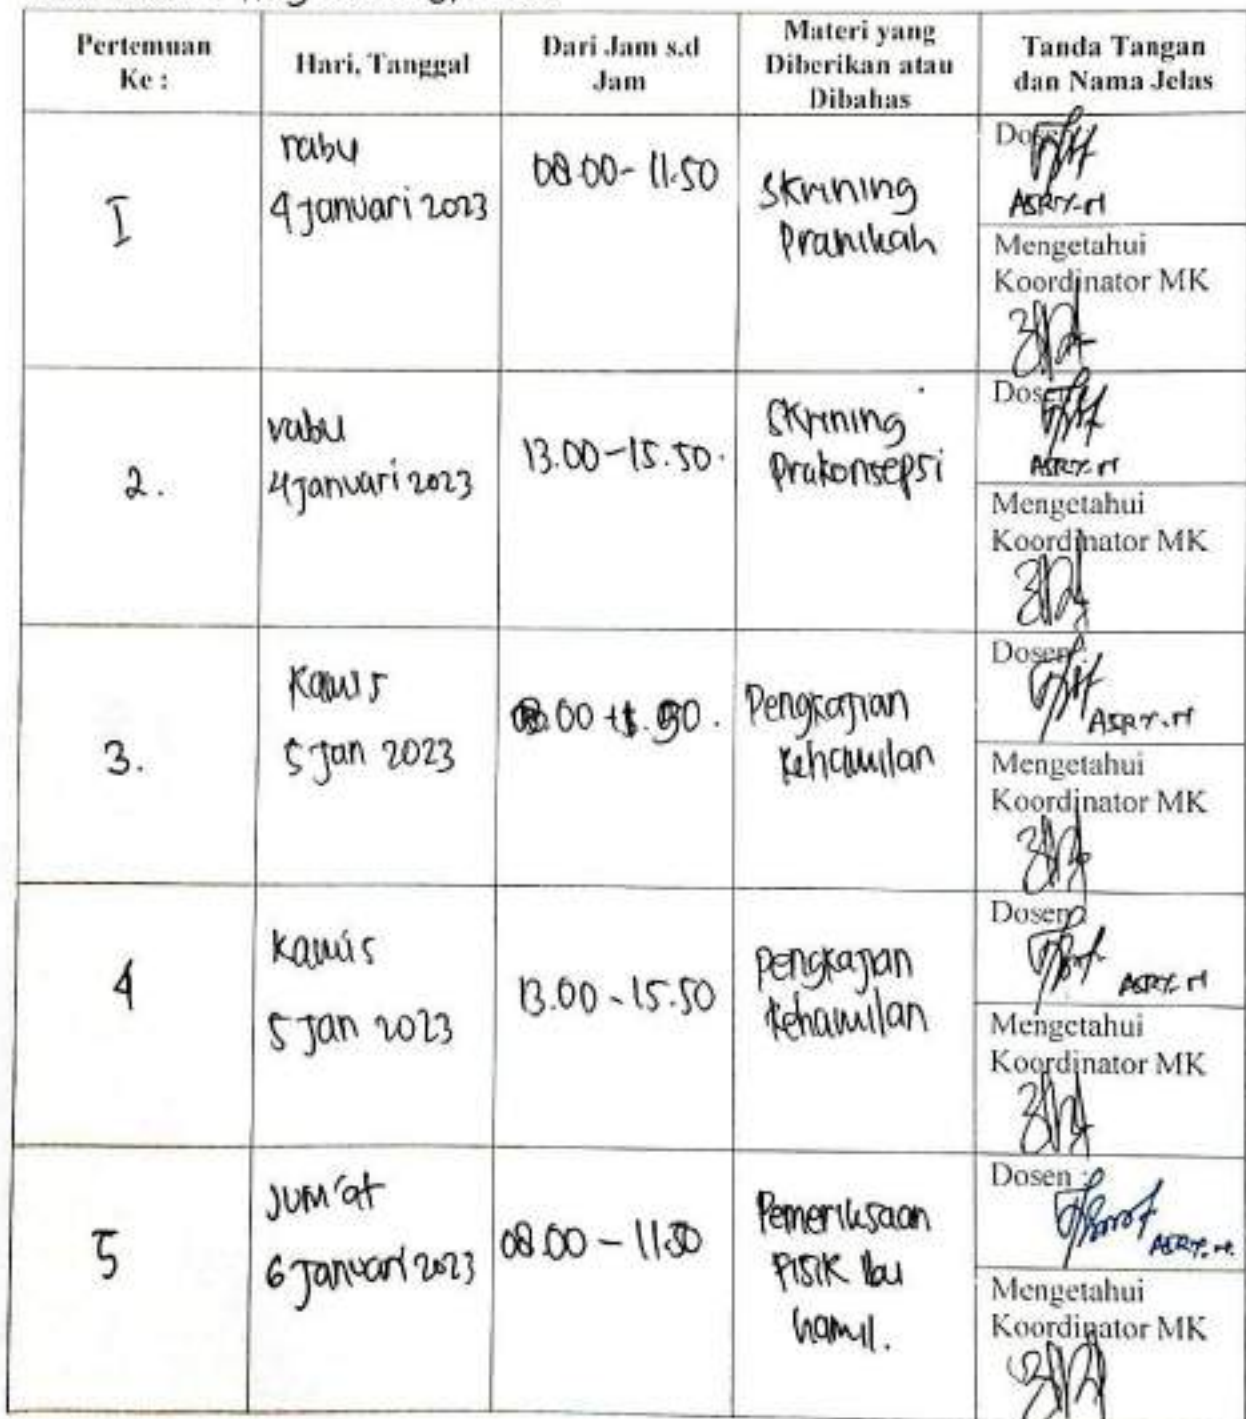 Pertemuan
Ke :
Hari, Tanggal
Dari Jam s.d
Jam
Materi yang
Diberikan atau
Dibahas
Tanda Tangan
dan Nama Jelas
I
rabu
4 Januari 2023
08.00 - 11.50
Skrining
Pranikah
Dosen
ASRY.M
Mengetahui
Koordinator MK
2.
rabu
4 Januari 2023
13.00 - 15.50.
Skrining
Prakonsepsi
Dosen
ASRY.M
Mengetahui
Koordinator MK
3.
Kamis
5 Jan 2023
Pengkajian
Kehamilan
Dosen
ASRY.M
Mengetahui
Koordinator MK
4
Kamis
5 Jan 2023
13.00 - 15.50
Pengkajian
Kehamilan
Dosen
ASRY.M
Mengetahui
Koordinator MK
5
Jum'at
6 Januari 2023
08.00 - 11.50
Pemeriksaan
Pisik Ibu
hamil.
Dosen :
ASRY.M.
Mengetahui
Koordinator MK